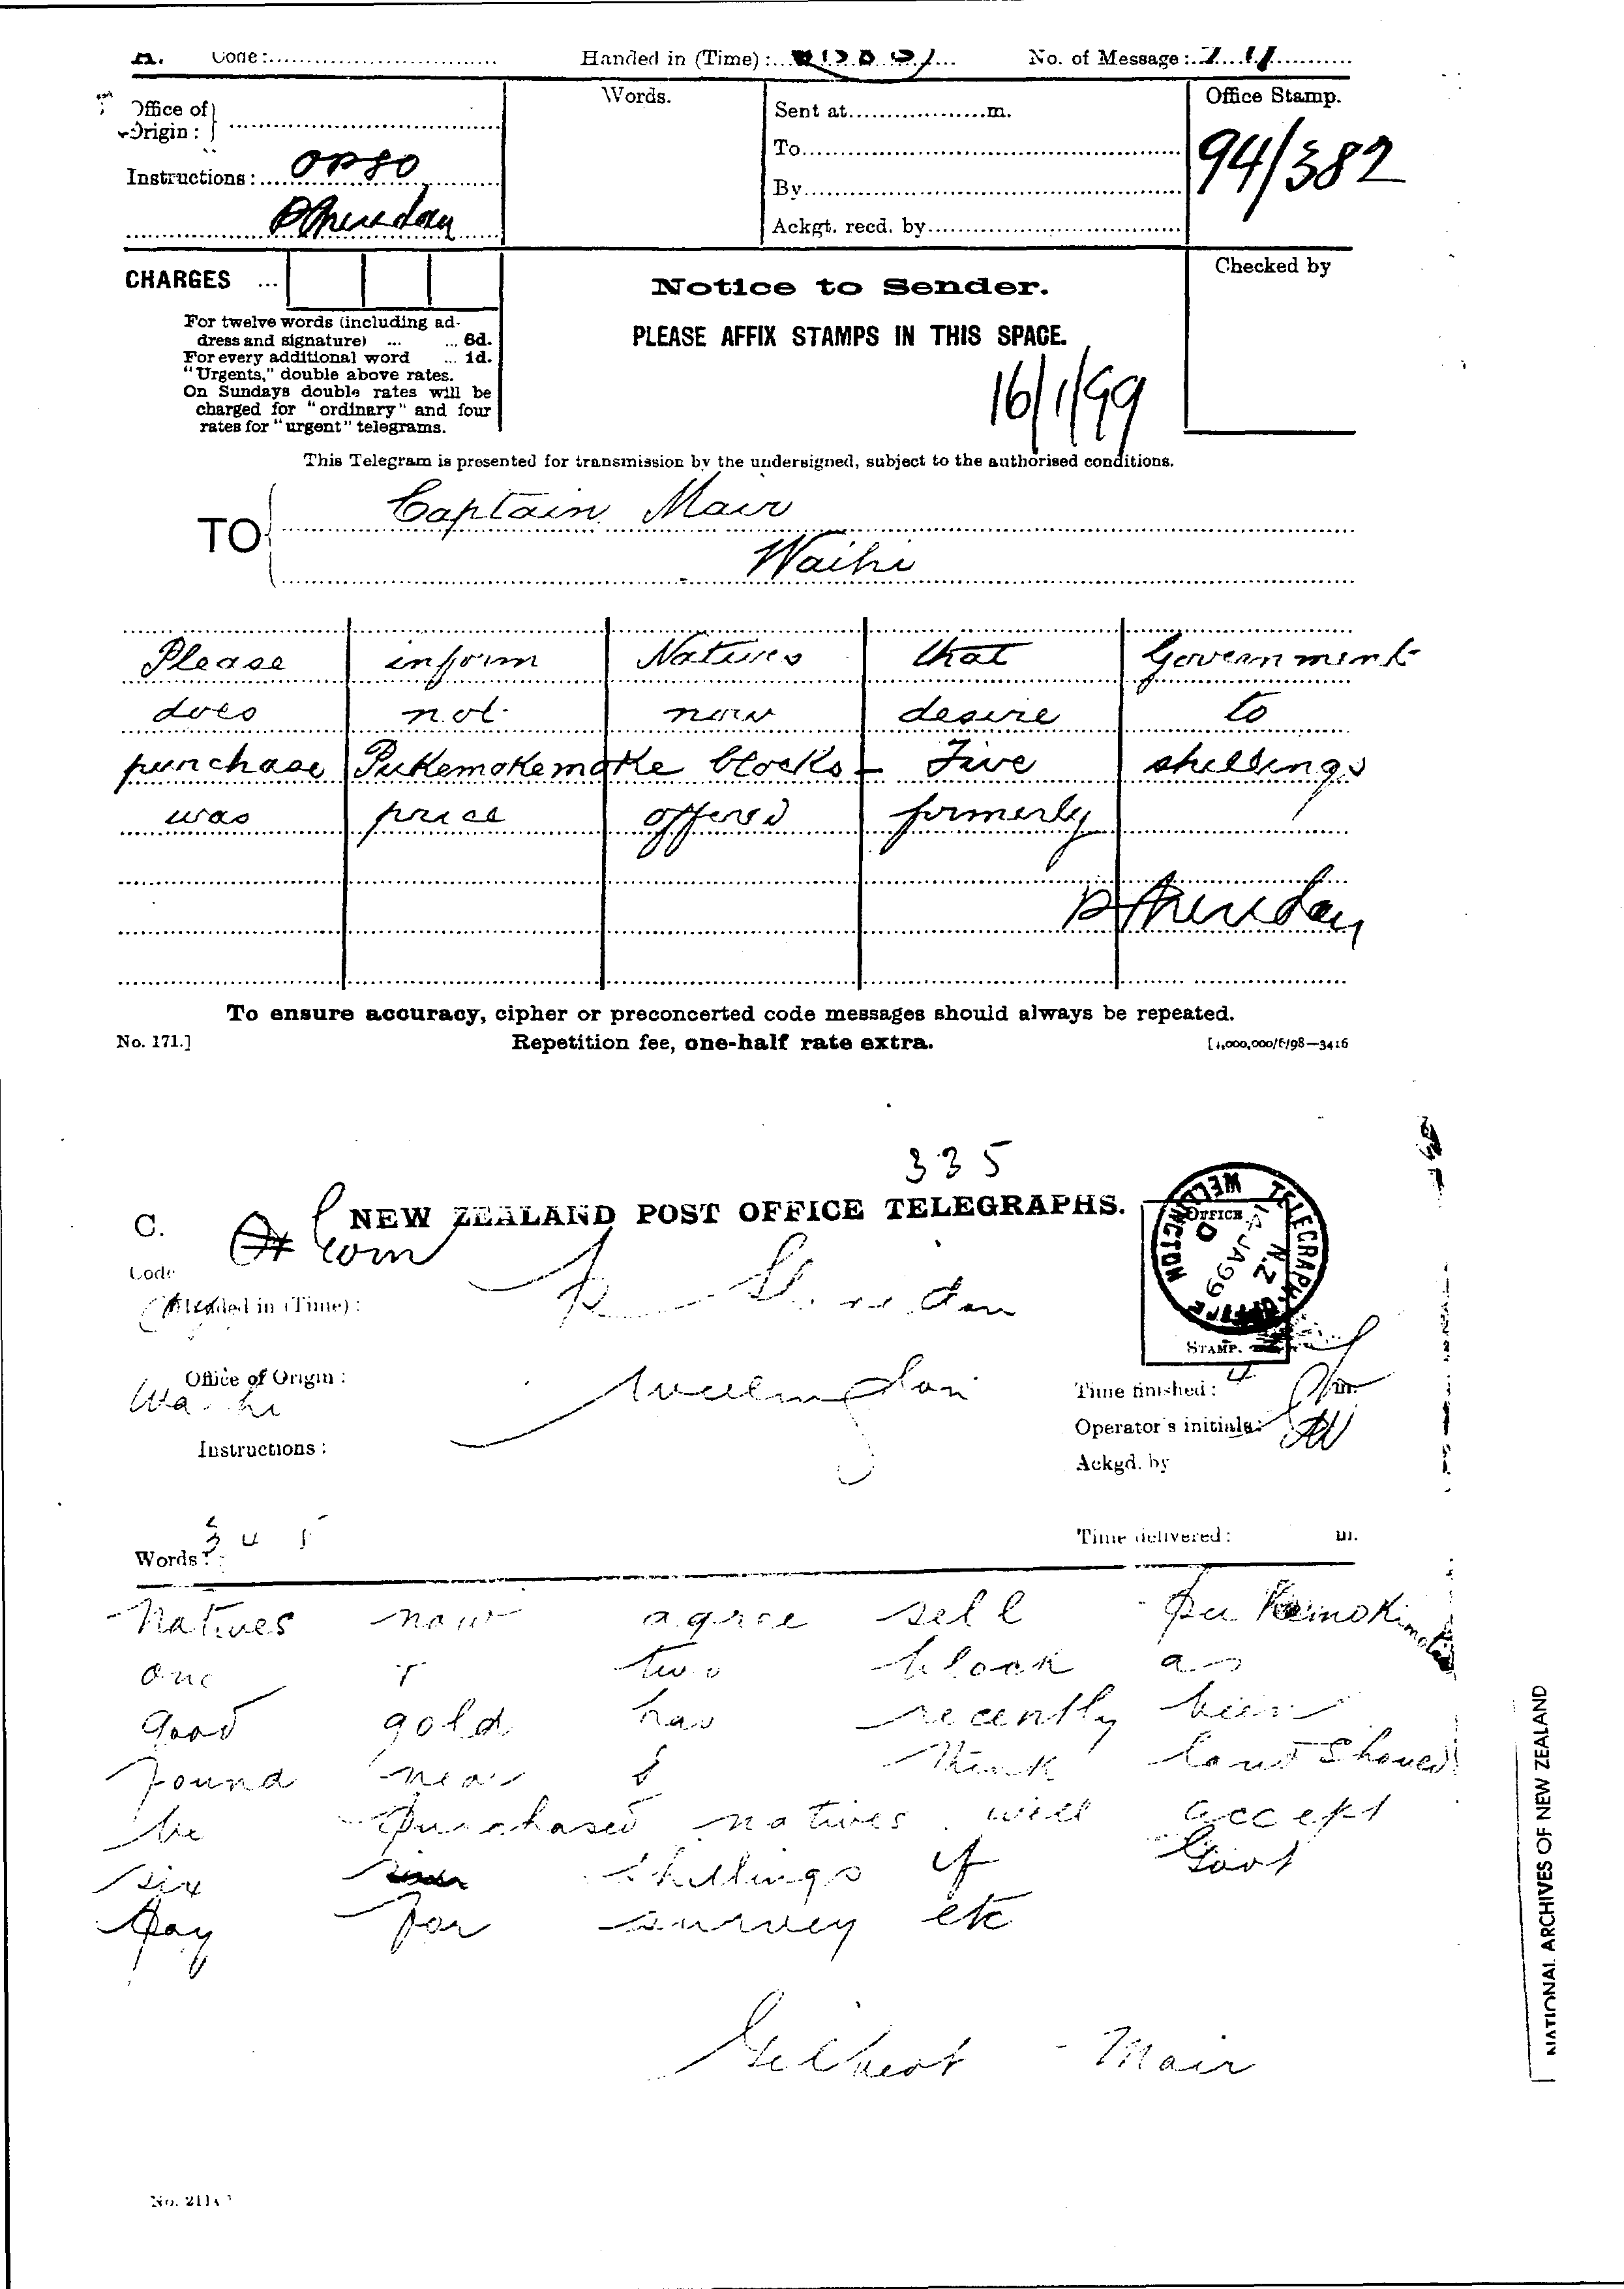 A. Code:
Handed in (Time):
No. of Message:
Office of Origin:
Words.
Sent at m.
To
By
Ackgt. recd. by
Office Stamp.
94/382
Instructions: OPSO
PSheridan
CHARGES ...
For twelve words (including ad-
dress and signature) ... ... 6d.
For every additional word ... 1d.
"Urgents," double above rates.
On Sundays double rates will be
charged for "ordinary" and four
rates for "urgent" telegrams.
Notice to Sender.
PLEASE AFFIX STAMPS IN THIS SPACE.
Checked by
16/1/99
This Telegram is presented for transmission by the undersigned, subject to the authorised conditions.
TO Captain Mair
Waihi
Please inform Natives that Government
does not now desire to
purchase Pukemokemoke blocks - Five shillings
was price offered formerly
PSheridan
To ensure accuracy, cipher or preconcerted code messages should always be repeated.
No. 171.] Repetition fee, one-half rate extra. [1,000,000/6/98—3416
335
C. NEW ZEALAND POST OFFICE TELEGRAPHS.
TELEGRAPH OFFICE WELLINGTON
N.Z.
JA 99
OFFICE
STAMP.
Code
Handed in (Time):
P Sheridan
Office of Origin:
Waihi
Wellington
Instructions:
Time finished:
Operator's initials:
Ackgd. by
Words:
Time delivered: m.
Natives now agree sell
one & two block as
good gold has recently been
found near & think land should
be purchased natives will accept
six shillings if Govt
pay for survey etc
Gilbert Mair
NATIONAL ARCHIVES OF NEW ZEALAND